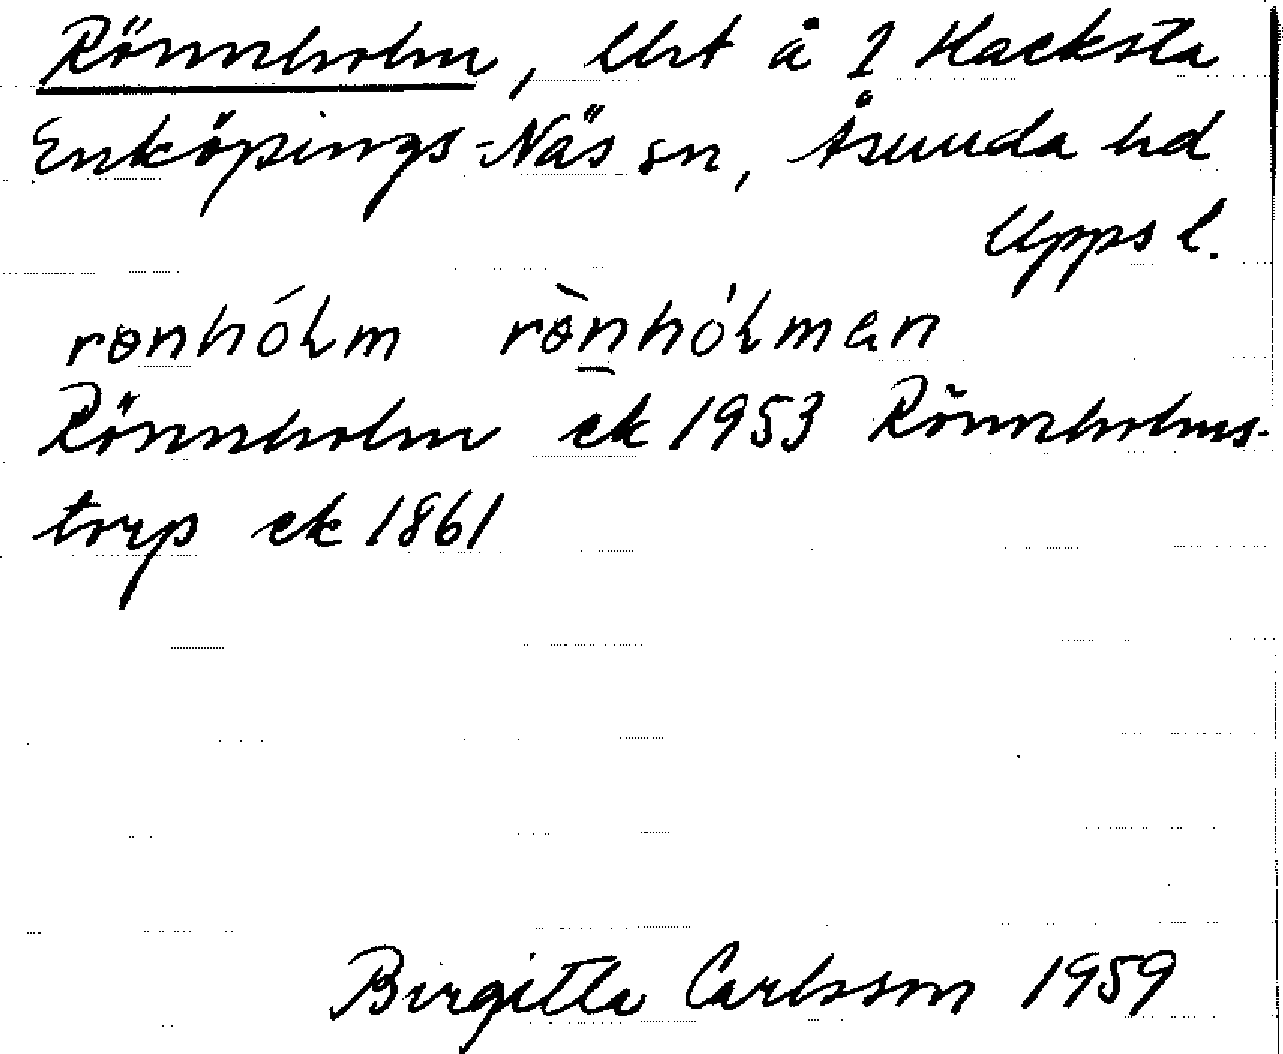 Rönnholm, lht å 2 Hacksta
Enköpings-Näs sn, Åsunda hd
Upps l.
rɵnhólm rɵ̀nhólman
Rönnholm ek 1953 Rönnholms-
torp ek 1861
Birgitta Carlsson 1959